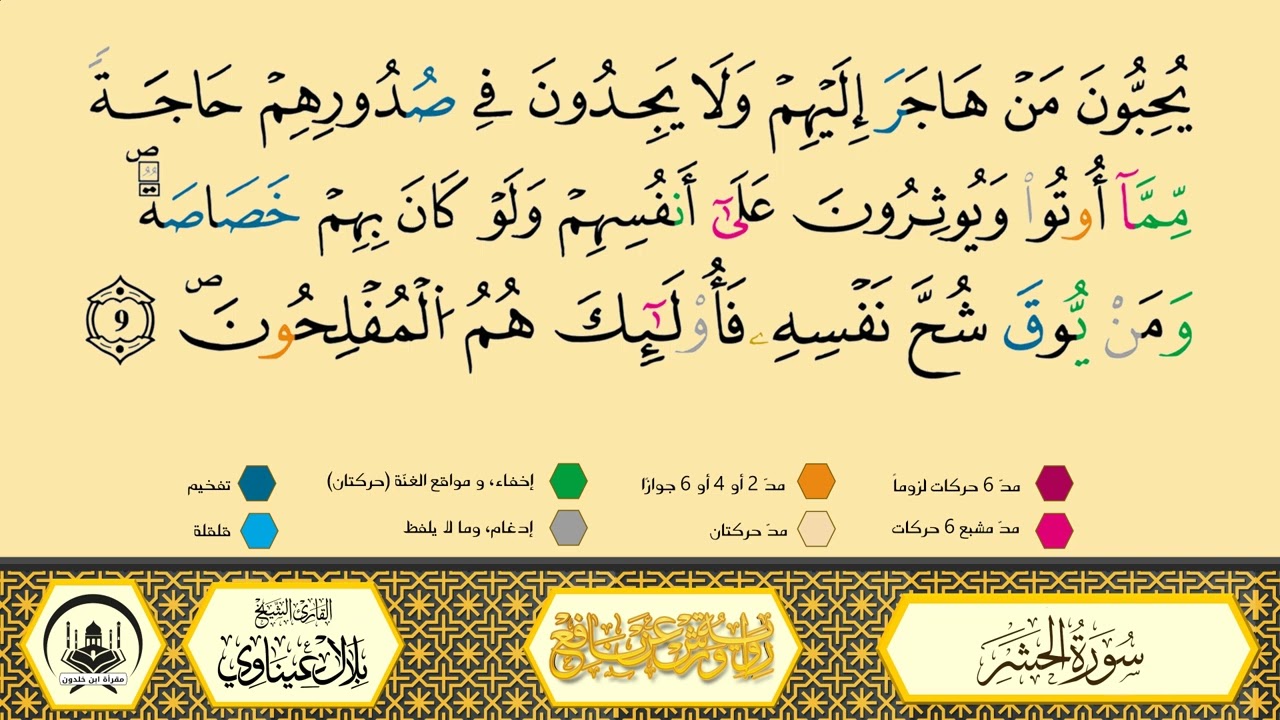 يُحِبُّونَ مَنْ هَاجَرَ إِلَيْهِمْ وَلَا يَجِدُونَ فِي صُدُورِهِمْ حَاجَةً
مِّمَّآ أُوتُوا۟ وَيُوثِرُونَ عَلَىٰٓ أَنفُسِهِمْ وَلَوْ كَانَ بِهِمْ خَصَاصَةٌ ص
وَمَنْ يُّوقَ شُحَّ نَفْسِهِۦ فَأُوْلَٰٓئِكَ هُمُ اُ۬لْمُفْلِحُونَ ص 9
مدّ 6 حركات لزوماً
مدّ 2 أو 4 أو 6 جوازًا
إخفاء، و مواقع الغنّة (حركتان)
تفخيم
مدّ مشبع 6 حركات
مدّ حركتان
إدغام، وما لا يلفظ
قلقلة
سُورَةُ الحَشْرِ
رواية ورش عن نافع
القارئ الشيخ
بلال عيناوي
مقرأة ابن خلدون